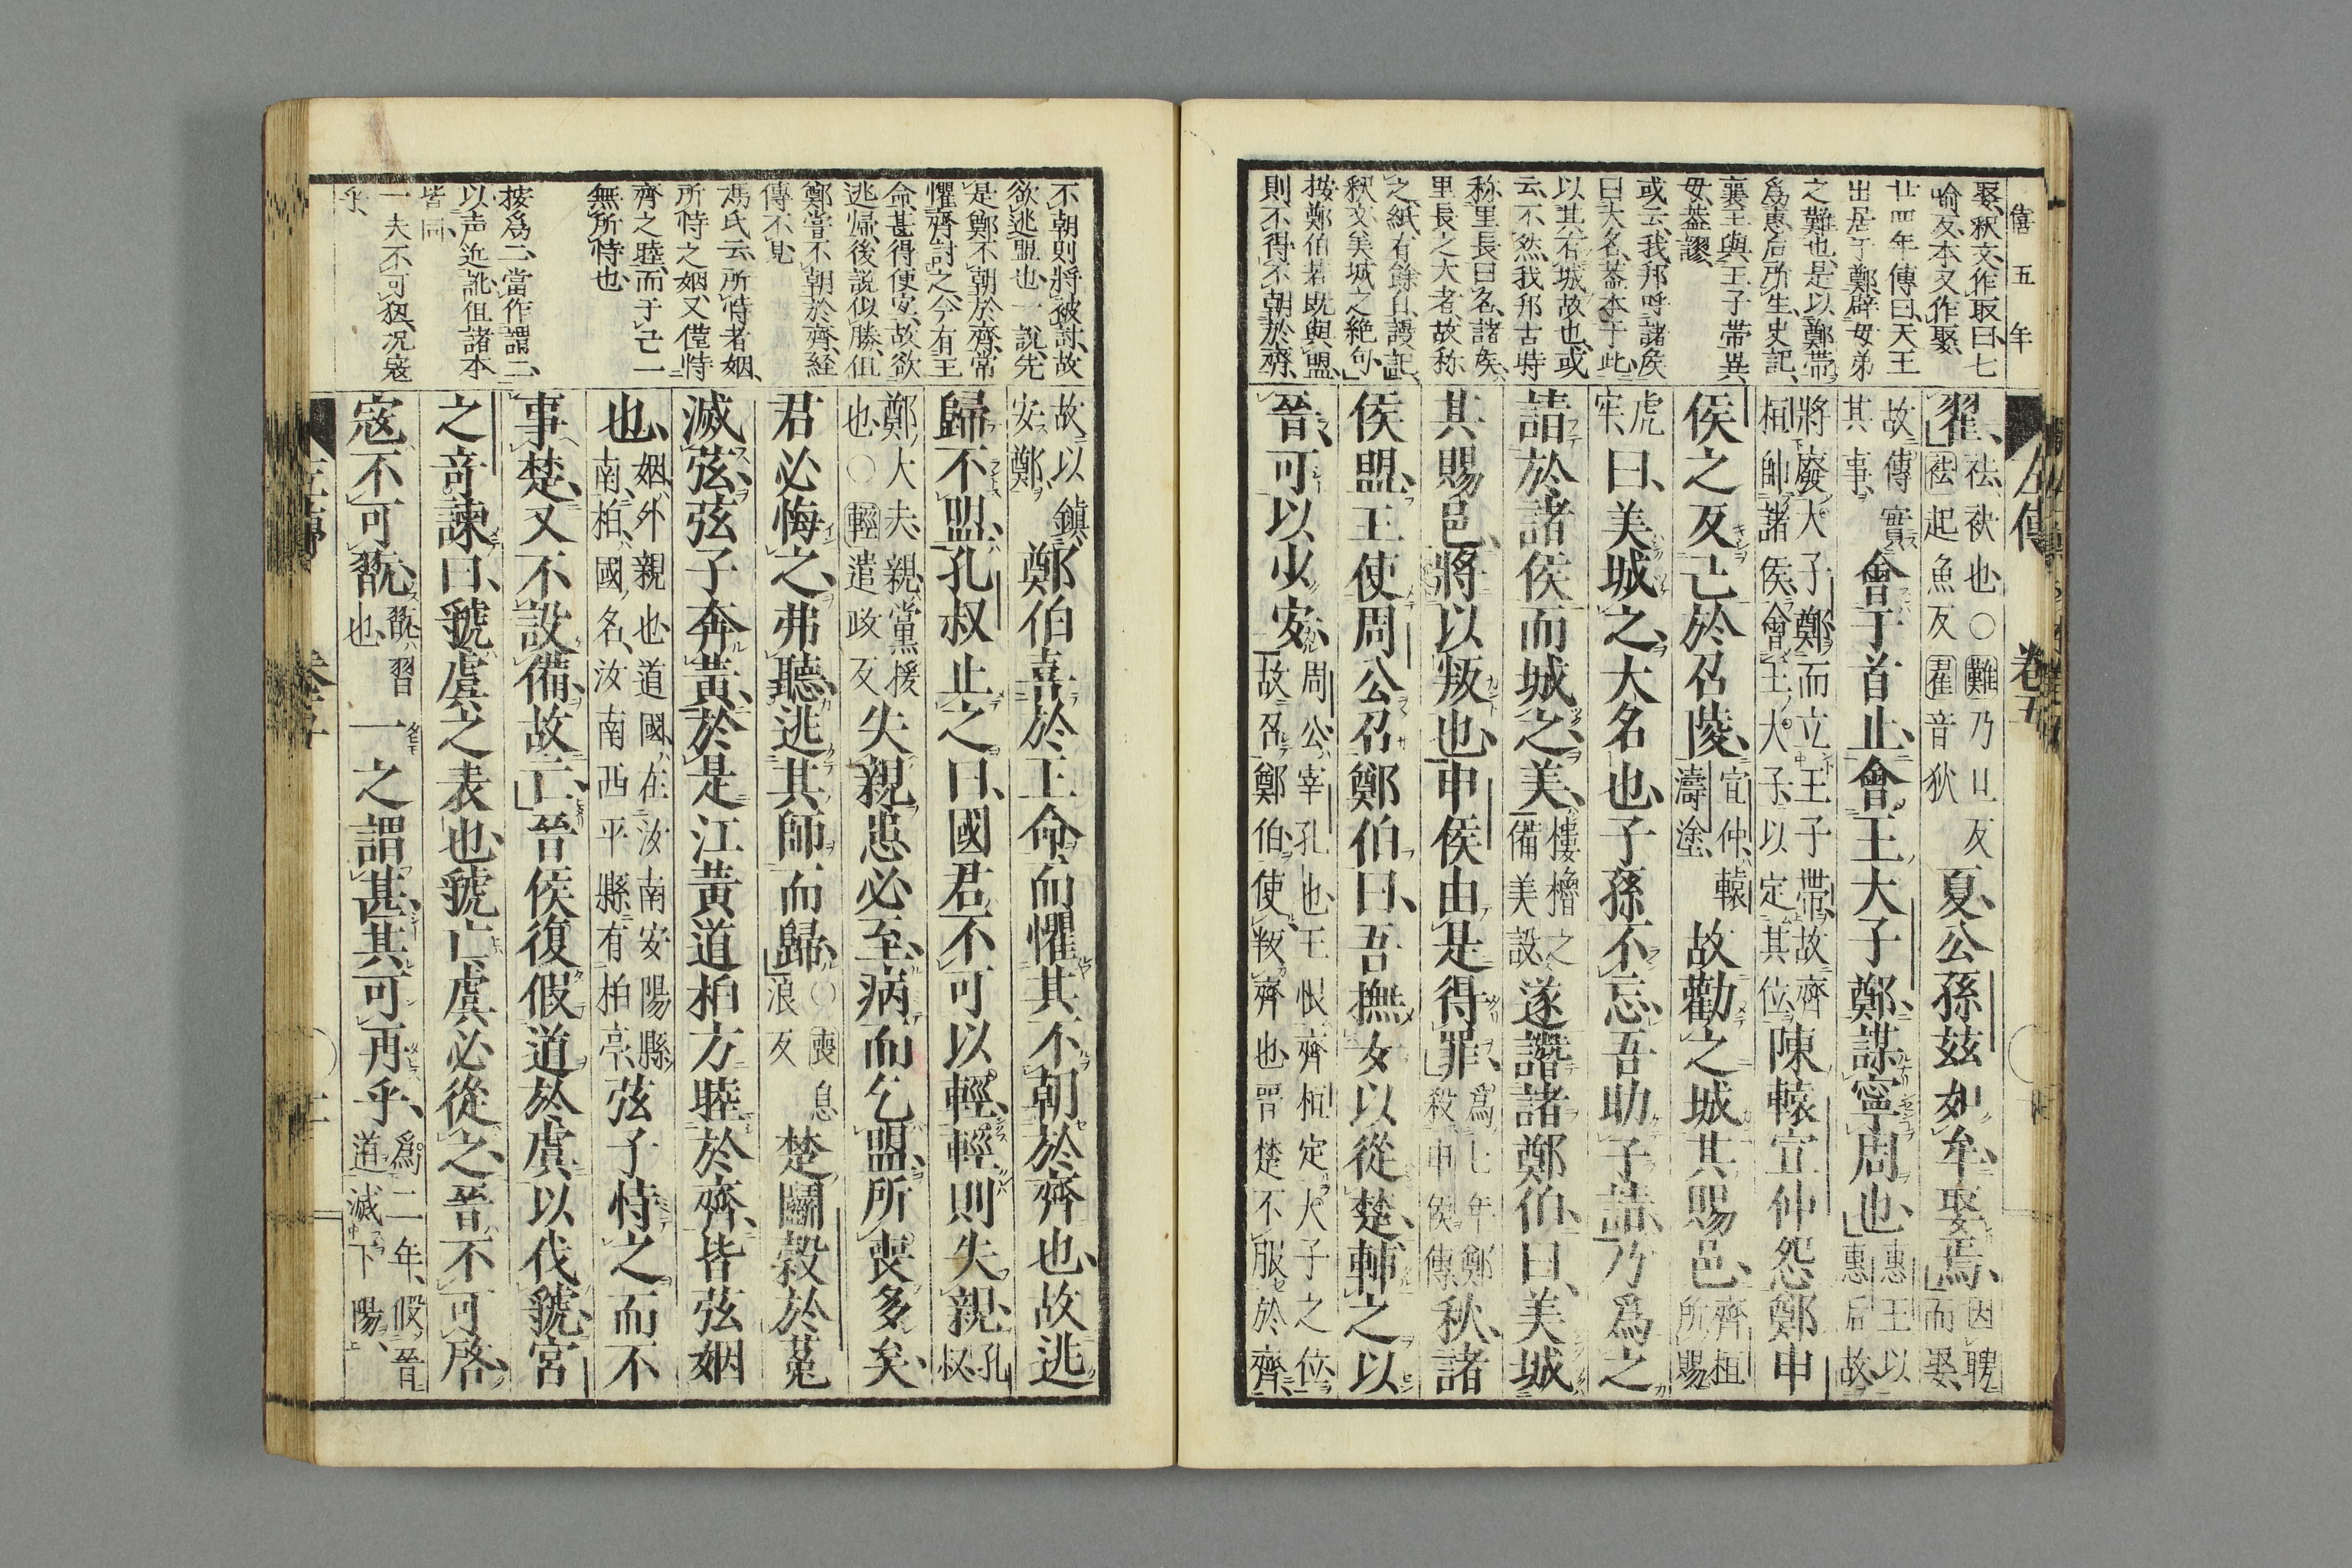 僖五年
娶、釈文、作取曰、七
喻反、本又作娶、
廿四年傳曰、天王
出居于鄭、辟母弟
之難也、是以鄭帯
爲惠后所生、史記、
襄王與王子帯異
母、蓋謬、
或云、我邦呼諸侯
曰大名、蓋本于此、
以其有城故也、或
云、不然、我邦古時
称里長曰名、諸侯、
里長之大者、故称
之、紙有餘白、謾記、
釈文、美城之絶句、
按鄭伯若既與盟、
則不得不朝於齊、
左傳 卷五
翟、袪、袂也、○難乃旦反
袪起魚反翟音狄夏、公孫茲如牟、娶焉、因聘
而娶、
故傳實
其事、會于首止、會王大子鄭、謀寧周也、惠王以
惠后故、
將廢大子鄭而立王子帶、故齊
桓帥諸侯會王大子、以定其位、陳轅宣仲怨鄭申
侯之反己於召陵、宣仲、轅
濤塗、故勸之城其賜邑、齊桓
所賜
虎
牢、曰、美城之、大名也、子孫不忘、吾助子請、乃爲之
請於諸侯而城之、美、樓櫓之
備美設、遂譖諸鄭伯、曰、美城
其賜邑、將以叛也、申侯由是得罪、爲七年鄭
殺申侯傳、秋、諸
侯盟、王使周公召鄭伯、曰、吾撫女以從楚、輔之以
晉、可以少安、周公、宰孔也、王恨齊桓定大子之位、
故召鄭伯、使叛齊也、晉楚不服於齊、
不朝則將被討、故
欲逃盟也、一説、先
是鄭不朝於齊、常
懼齊討之、今有王
命、甚得便安、故欲
逃歸、後説似勝、但
鄭嘗不朝於齊、経
傳不見
馮氏云、所恃者姻、
所恃之姻、又僅恃
齊之睦、而于己一
無所恃也、
按爲二、當作謂二、
以声近訛、但諸本
皆同、
一夫不可翫、况寇
乎、
故以鎮
安鄭、鄭伯喜於王命、而懼其不朝於齊也、故逃
歸不盟、孔叔止之、曰、國君不可以輕、輕則失親、孔叔、
鄭大夫、親、黨援
也、○輕遣政反失親患必至、病而乞盟、所喪多矣、
君必悔之、弗聽、逃其師而歸、○喪息
浪反楚鬭穀於菟
滅弦、弦子奔黃、於是江黃道柏方睦於齊、皆弦姻
也、姻、外親也、道國、在汝南安陽縣、
南、柏、國名、汝南西平縣有柏亭、弦子恃之而不
事楚、又不設備、故亡、晉侯復假道於虞以伐虢、宮
之奇諫曰、虢、虞之表也、虢亡、虞必從之、晉不可啓、
寇不可翫、翫、習
也、一之謂甚、其可再乎、爲二年、假晉
道滅下陽、